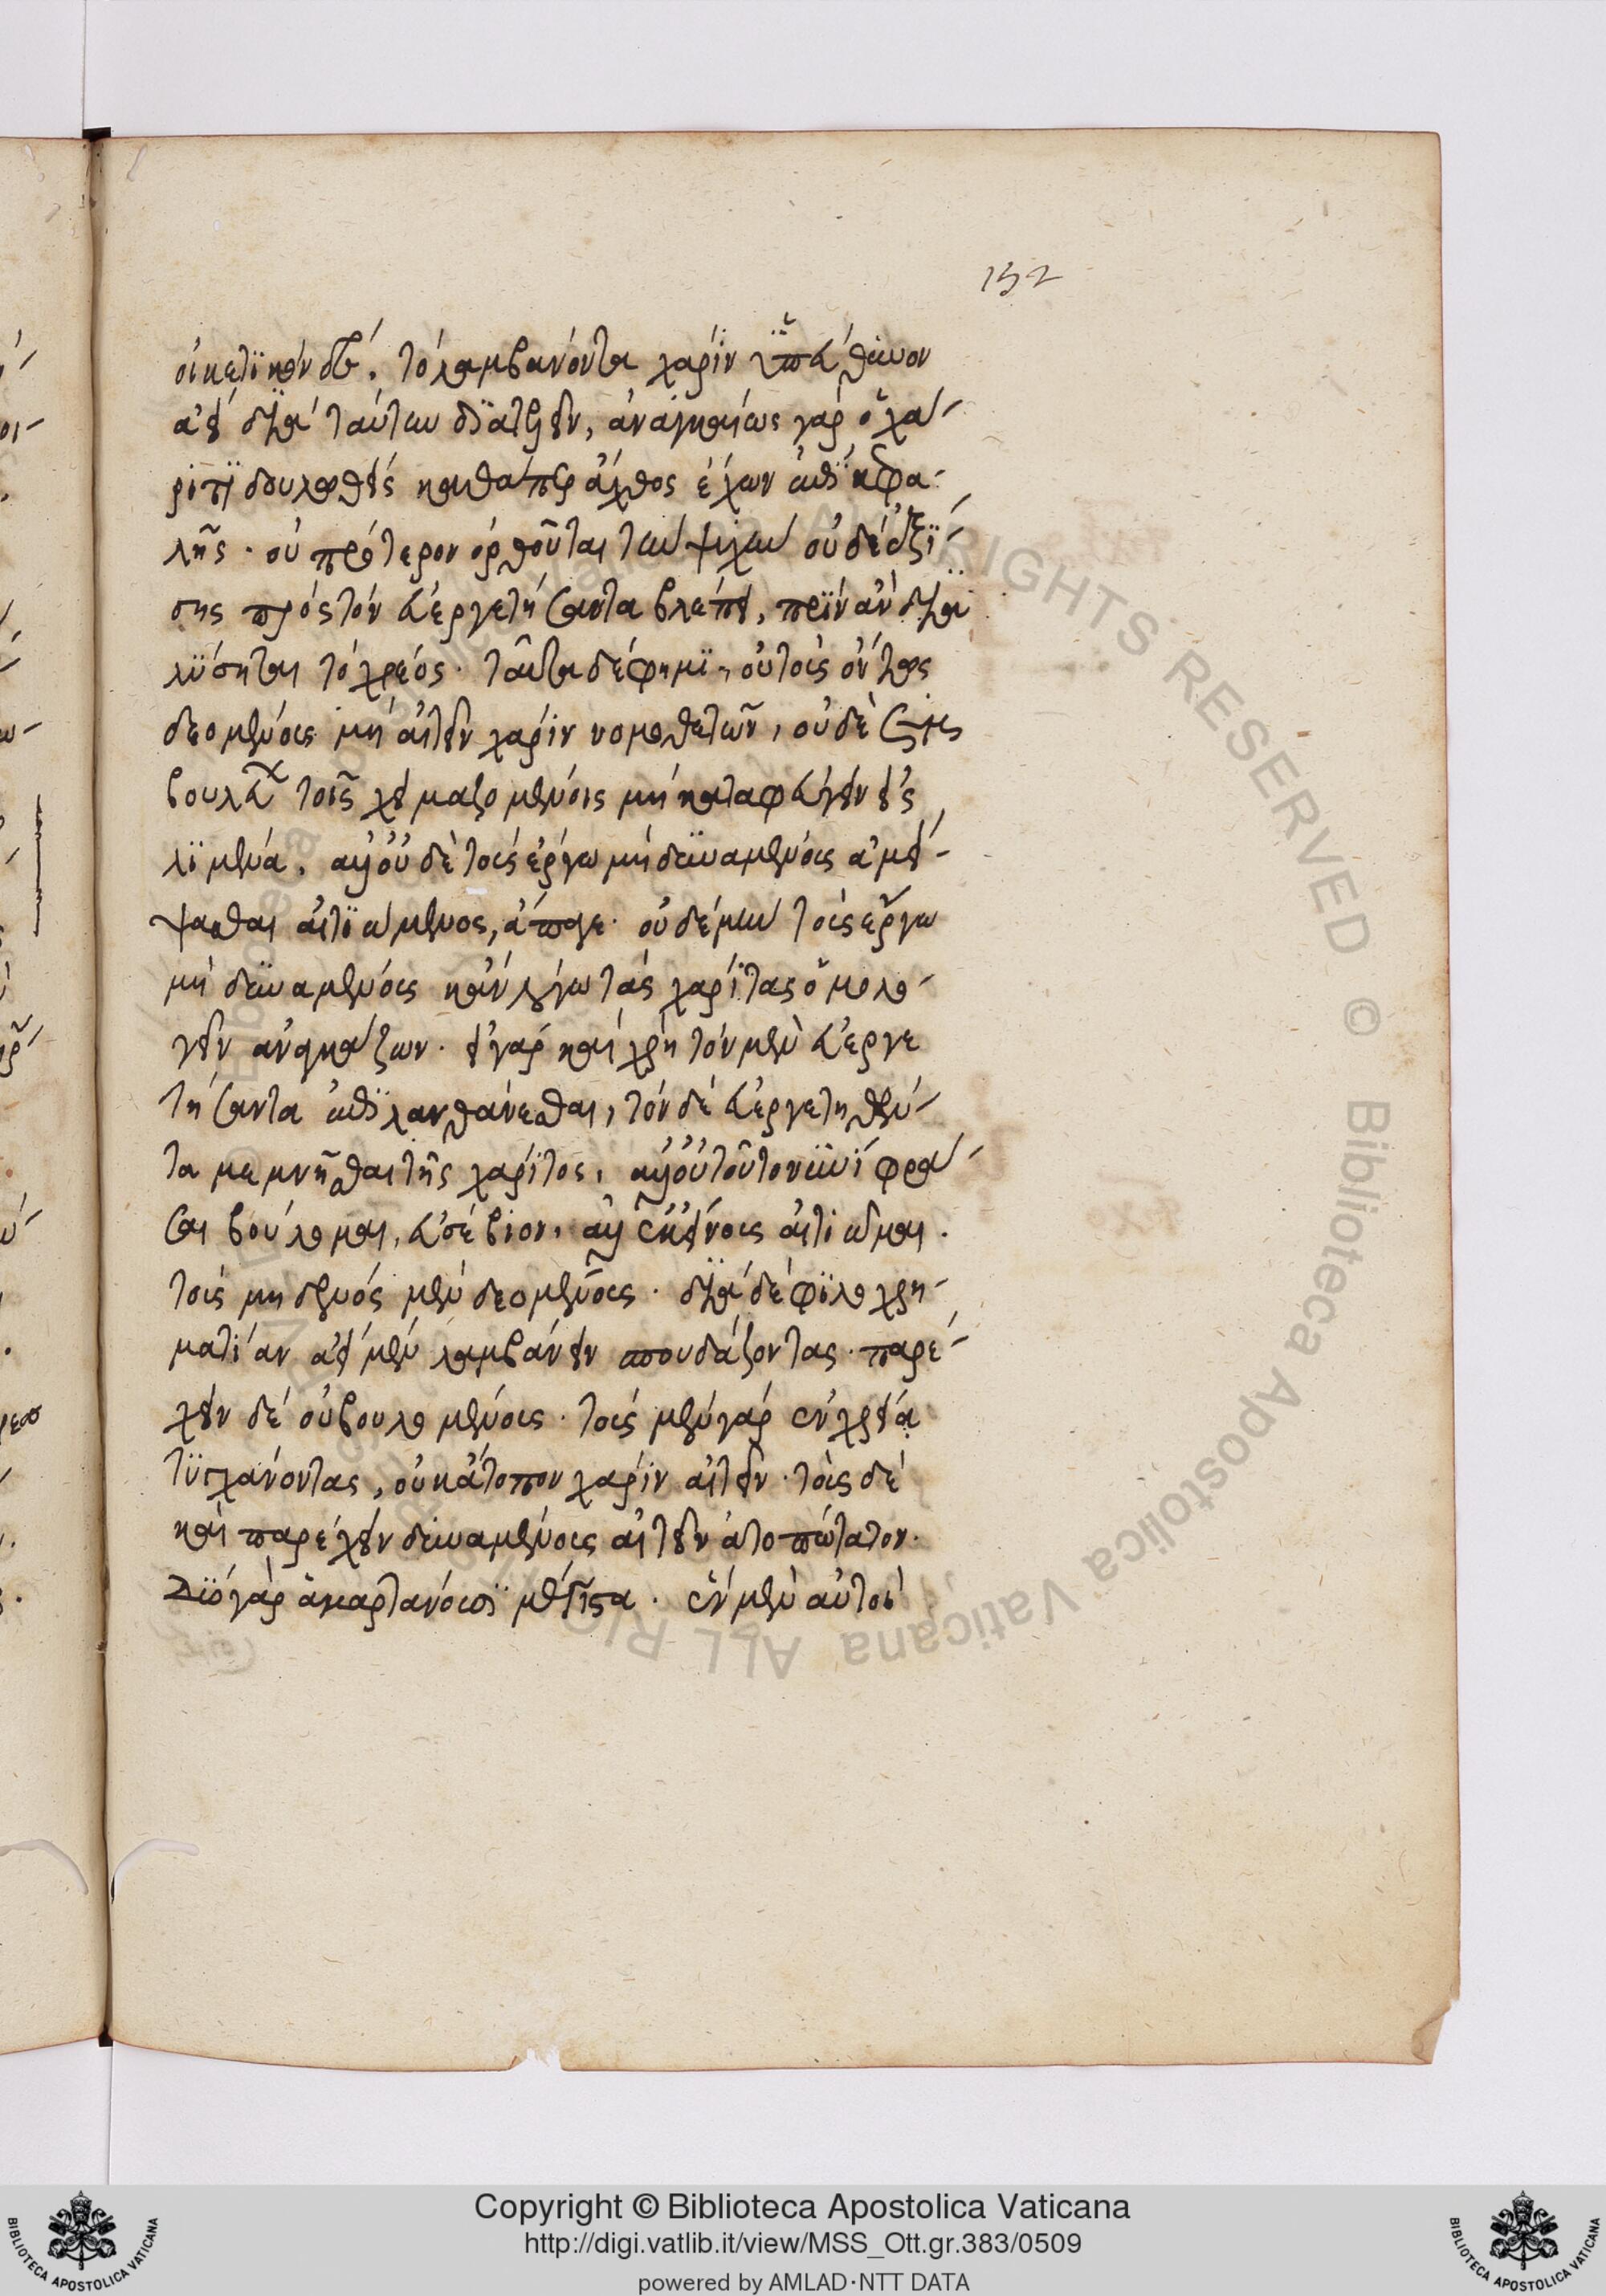 152
οἰκετικὸν δὲ, τὸ λαμβάνοντα χάριν ὑπεύθυνον
ἀεὶ διὰ ταύτην διατελεῖν, ἀναγκαίως γὰρ ὁ χά-
ριτι δουλωθεὶς καθάπερ ἄχθος ἔχων ἐπὶ κεφα-
λῆς. οὐ πρότερον ὀρθοῦται τὴν ψυχὴν οὐδὲ ἐξί-
σης πρὸς τὸν εὐεργετήσαντα βλέπει, πρὶν ἂν διαὶ
λύσηται τὸ χρέος. ταῦτα δέ φημι, οὐ τοῖς ὄντως
δεομένοις μὴ αἰτεῖν χάριν νομοθετῶν, οὐδὲ
βουλεύων τοῖς χειμαζομένοις μὴ καταφεύγειν εἰς
λιμένα. ἀλλ' οὐδὲ τοῖς ἔργω μὴ δυναμένοις ἀμεί-
ψασθαι αἰτιώμενος, ἄπαγε. οὐδὲ μὴν τοῖς ἔργω
μὴ δυναμένοις κἂν λόγω τὰς χάριτας ὁμολο-
γεῖν ἀναγκάζων. εἰ γὰρ καὶ χρὴ τὸν μὲν εὐεργε
τήσαντα ἐπιλανθάνεσθαι, τὸν δὲ εὐεργετηθέν-
τα μεμνῆσθαι τῆς χάριτος, ἀλλ' οὐ τοῦτο νυνὶ φρά-
σαι βούλομαι, εὐσέβιον, ἀλλ' ἐκείνοις αἰτιῶμαι.
τοῖς μηδενὸς μὲν δεομένοις. διὰ δὲ φιλοχρη-
ματίαν ἀεὶ μὲν λαμβάνειν σπουδάζοντας. παρέ-
χειν δὲ οὐ βουλομένοις. τοῖς μὲν γὰρ ἐν χρεία
τυγχάνοντας, οὐκ ἄτοπον χάριν αἰτεῖν. τοῖς δὲ
καὶ παρέχειν δυναμένοις αἰτεῖν ἀτοπώτατον.
Δύο γὰρ ἁμαρτάνουσι μέγιστα. ἐν μὲν αὐτοὶ
Copyright © Biblioteca Apostolica Vaticana
http://digi.vatlib.it/view/MSS_Ott.gr.383/0509
powered by AMLAD·NTT DATA
BIBLIOTECA APOSTOLICA VATICANA
BIBLIOTECA APOSTOLICA VATICANA